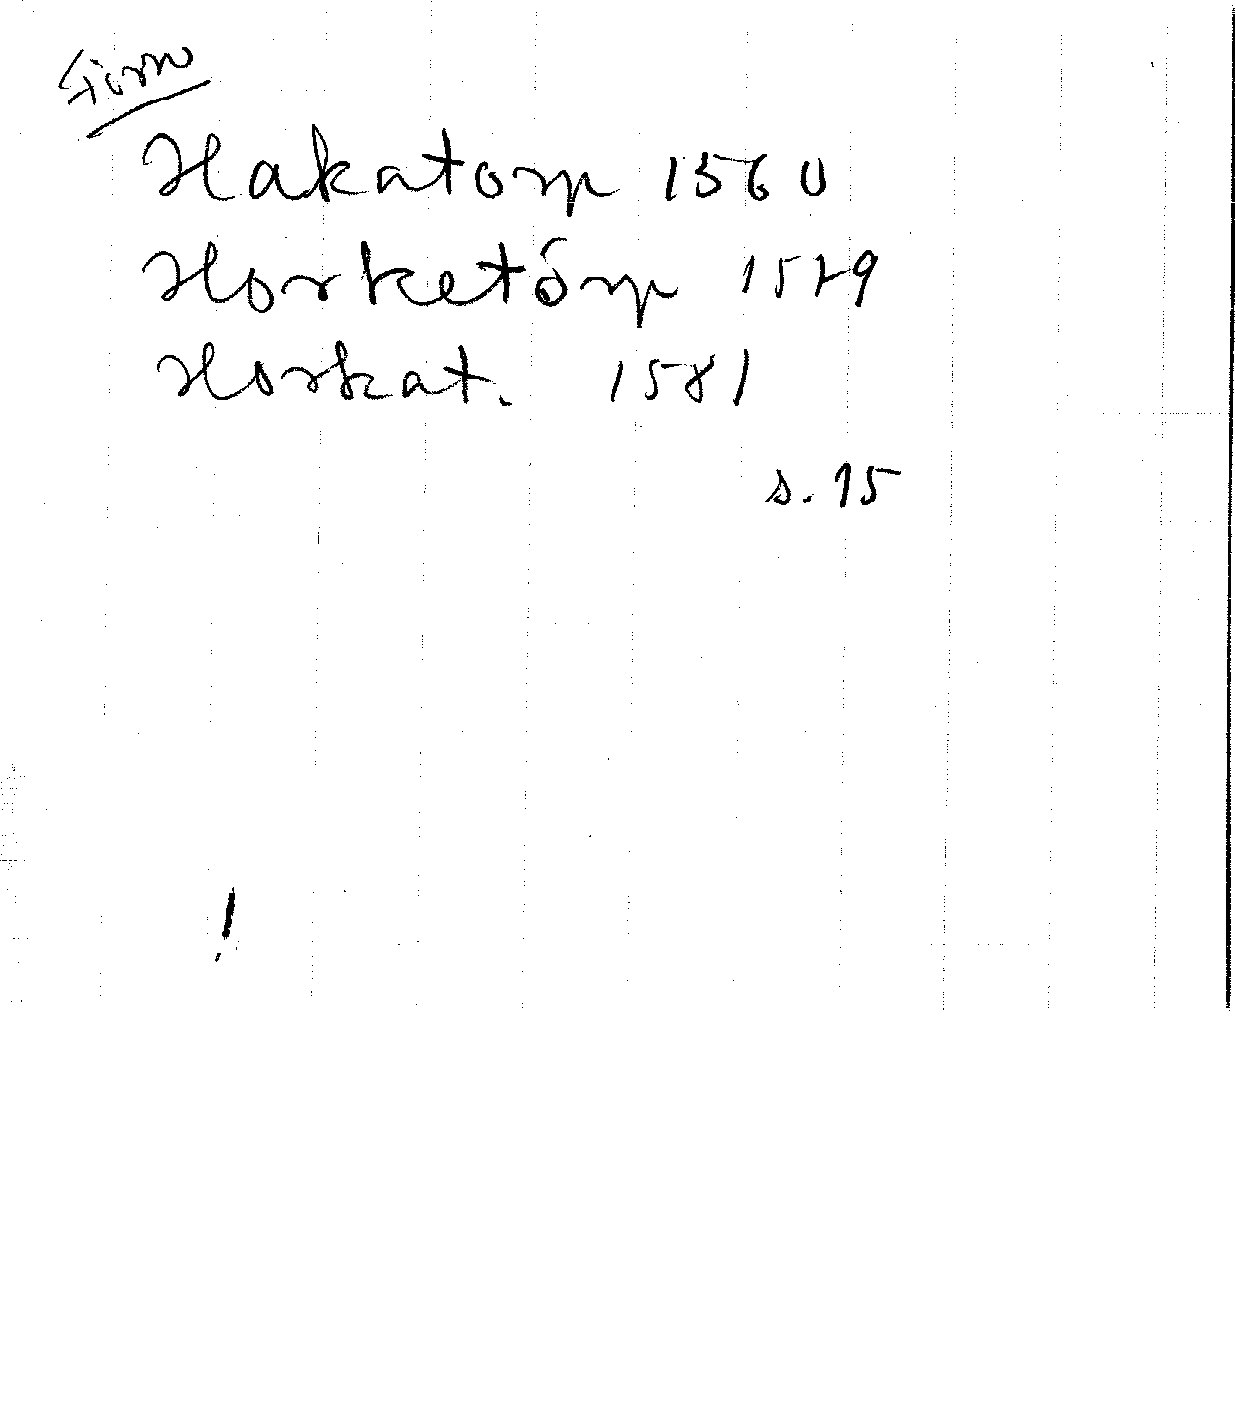 Hakatorp 1560
Horketórp 1529
Horkat. 1581
s. 15
!